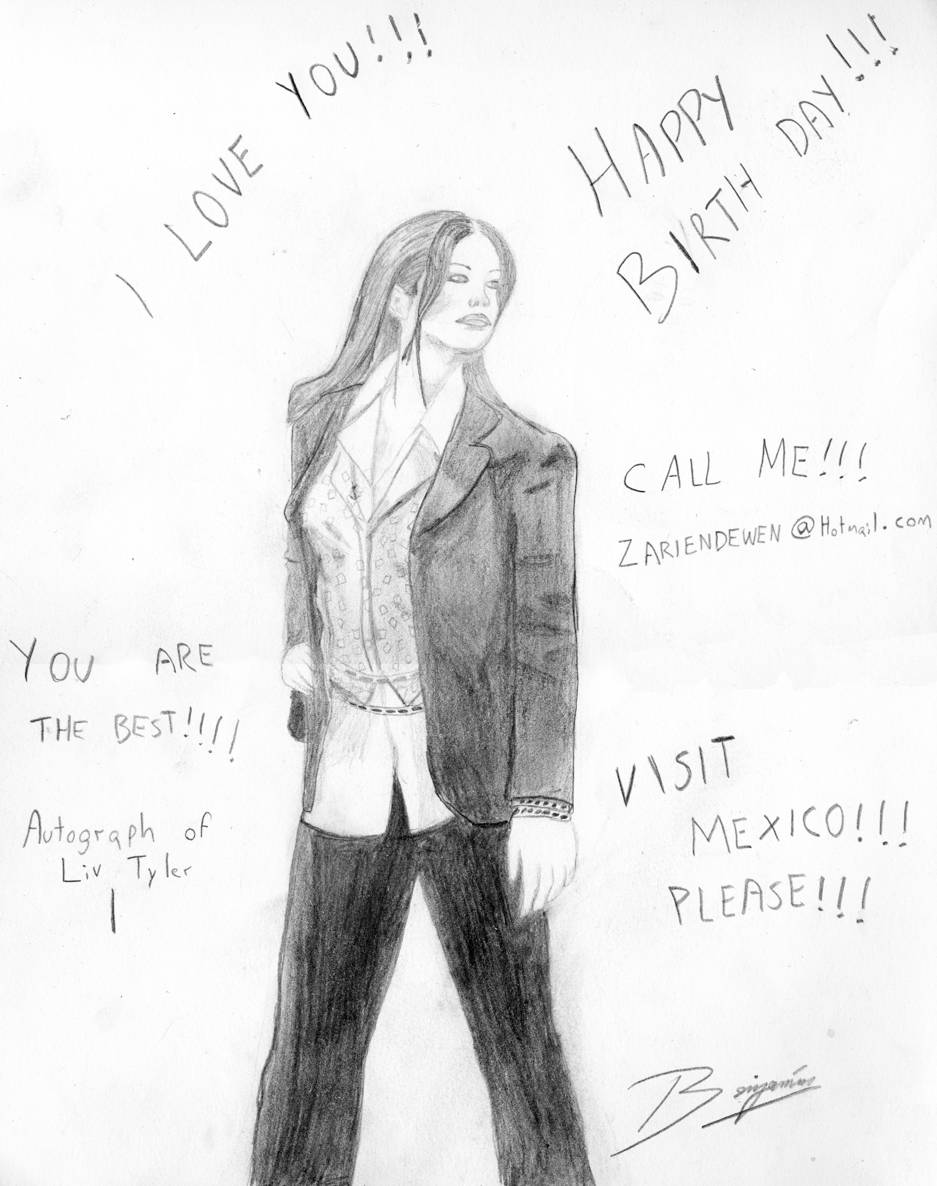 I LOVE YOU!!!
HAPPY
BIRTH DAY!!!
CALL ME!!!
ZARIENDEWEN@Hotmail.com
YOU ARE
THE BEST!!!!
Autograph of
Liv Tyler
VISIT
MEXICO!!!
PLEASE!!!
Benjamin